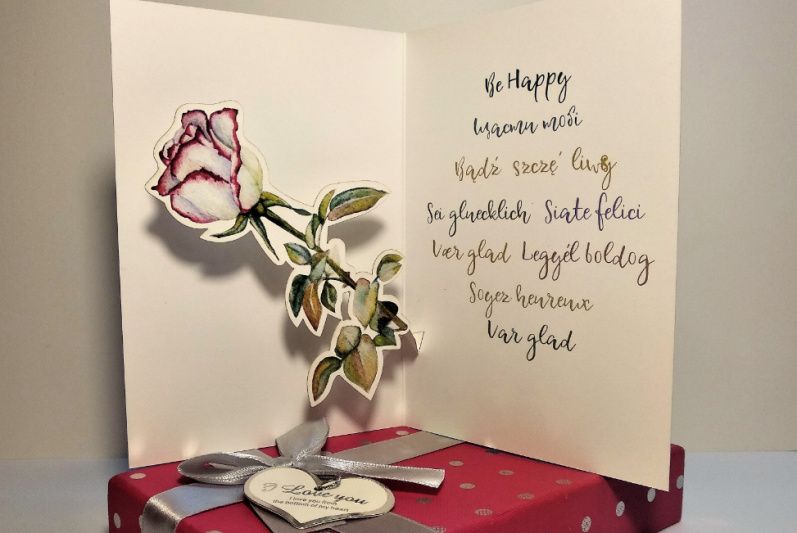 Be Happy
щасти тобі
Bądź szczęśliwy
Sei gluecklich Siate felici
Vær glad Legyél boldog
Soyez heureux
Var glad
Love you
I love you from
the bottom of my heart